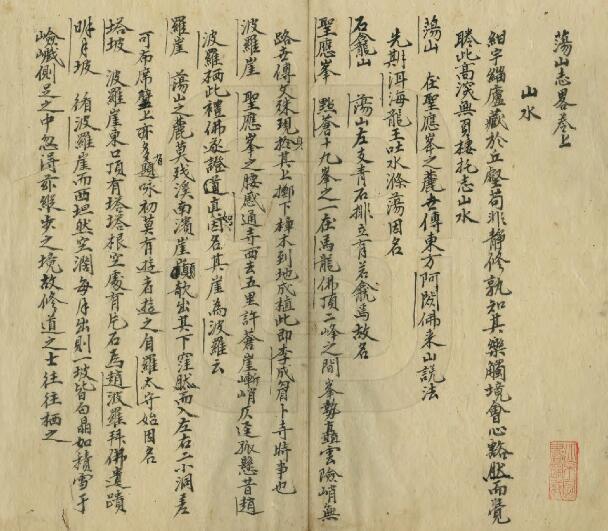 蕩山志畧卷上
山水
紺宇緇廬藏於丘壑苟非靜修孰知其樂觸境會心豁然而覺
勝此高深無負棲托志山水
蕩山 在聖應峯之麓世傳東方阿閦佛來山說法
先期洱海龍王吐水滌蕩因名
石龕山 蕩山左支青石排立有若龕焉故名
聖應峯 點蒼十九峯之一在馬龍佛頂二峰之間峯勢矗雲險峭無
路世傳文殊現於其上擲下樟木到地成植此即李成眉卜寺時事也
波羅崖 聖應峯之腰感通寺西去五里許蒼崖嶄峭仄逕孤懸昔趙
波羅栖此禮佛遂證道因名其崖為波羅云
羅崖 蕩山之麓莫残溪南濱崖巔欹出其下窪然而入左右二小洞差
可布席壁上亦多題咏初莫有遊者遊之自羅太守始因名
塔坡 波羅崖東口頂有塔塔根空處有片石焉趙波羅拜佛遺蹟
明月坡 循波羅崖而西坦然空濶每月出則一坡皆白晶如積雪于
嶮巇側足之中忽得亦縱步之境故修道之士往往栖之